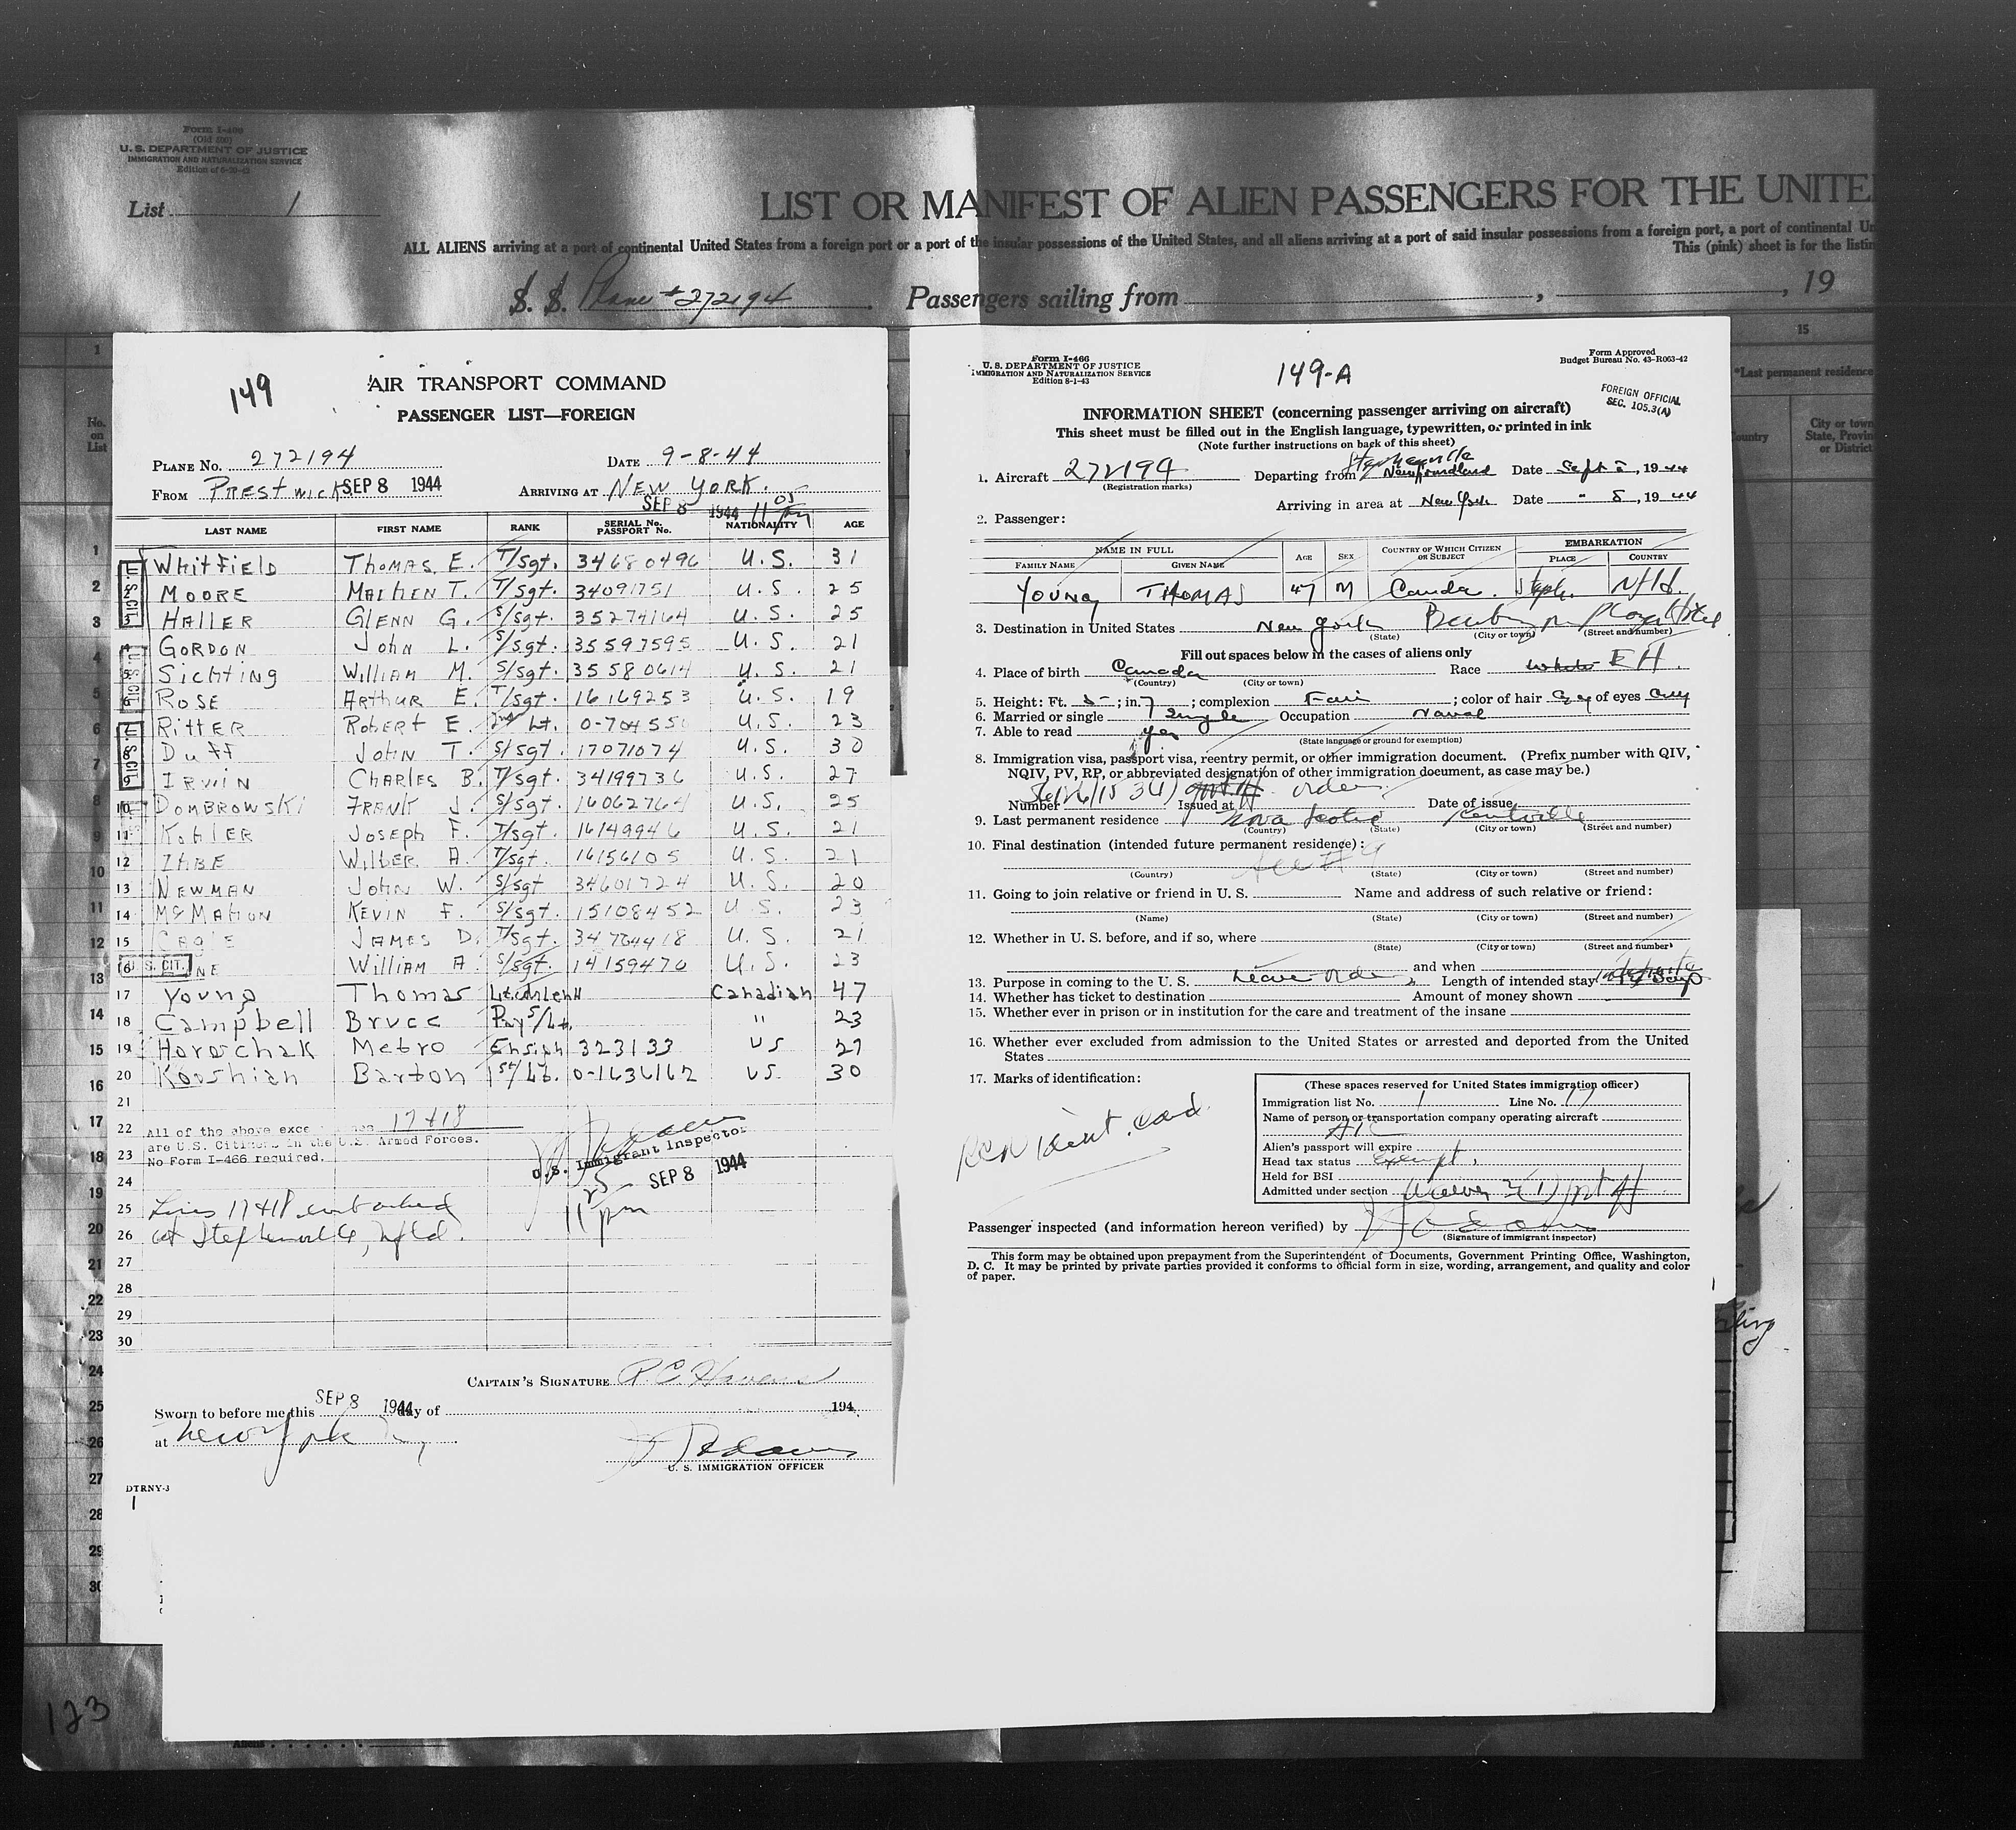 Form I-466
(Old 500)
U. S. DEPARTMENT OF JUSTICE
IMMIGRATION AND NATURALIZATION SERVICE
List 1
LIST OR MANIFEST OF ALIEN PASSENGERS FOR THE UNITE
ALL ALIENS arriving at a port of continental United States from a foreign port or a port of the insular possessions of the United States, and all aliens arriving at a port of said insular possessions from a foreign port, a port of continental Un
This (pink) sheet is for the listin
S. S. Plane #272194 Passengers sailing from , , 19
149
AIR TRANSPORT COMMAND
PASSENGER LIST—FOREIGN
PLANE No. 272194 DATE 9-8-44
FROM PRESTWICK SEP 8 1944 ARRIVING AT NEW YORK.
SEP 8 1944 11 05 pm
LAST NAME FIRST NAME RANK SERIAL No. PASSPORT No. NATIONALITY AGE
WHITFIELD THOMAS E. T/Sgt. 34680496 U.S. 31
MOORE MATHEN T. T/Sgt. 34091751 U.S. 25
HALLER GLENN G. S/Sgt. 35274164 U.S. 25
GORDON JOHN L. S/Sgt. 35597595 U.S. 21
SICHTING WILLIAM M. S/Sgt. 35580614 U.S. 21
ROSE ARTHUR E. T/Sgt. 16169253 U.S. 19
RITTER ROBERT E. 2nd Lt. U.S. 23
DUFF JOHN T. S/Sgt. 17071074 U.S. 30
IRWIN CHARLES B. T/Sgt. 34199736 U.S. 27
10 DOMBROWSKI FRANK J. S/Sgt. 16062764 U.S. 25
11 KOHLER JOSEPH F. T/Sgt. 16149946 U.S. 21
12 IHBE WILBER A. T/Sgt. 16156105 U.S. 21
13 NEWMAN JOHN W. S/Sgt 34601724 U.S. 20
14 McMAHON KEVIN F. S/Sgt. 15108452 U.S. 23
15 CAGLE JAMES D. T/Sgt. 34764418 U.S. 21
16 U.S. CIT. NE WILLIAM A. S/Sgt. 14159470 U.S. 23
17 Young Thomas Canadian 47
18 Campbell Bruce Pay S/Lt. " 23
19 Horoschak Metro Ensign 323133 US 27
20 Kooshian Barton 1st/Lt. 0-1636162 US 30
21
22 All of the above exce nes 17+18
are U.S. Citizens in the U.S. Armed Forces.
23 No Form I-466 required.
U.S. Immigrant Inspector
SEP 8 1944
24
25 Lines 17+18 embarked
26 at Stephenville, Nfld.
11 25 pm
27
28
29
30
CAPTAIN'S SIGNATURE
Sworn to before me this SEP 8 1944 day of 194
at New York
U. S. IMMIGRATION OFFICER
DTRNY-3
1
123
Form I-466
U. S. DEPARTMENT OF JUSTICE
IMMIGRATION AND NATURALIZATION SERVICE
Edition 8-1-43
149-A
Form Approved
Budget Bureau No. 43-R063-42
FOREIGN OFFICIAL
SEC. 105.3(A)
INFORMATION SHEET (concerning passenger arriving on aircraft)
This sheet must be filled out in the English language, typewritten, or printed in ink
(Note further instructions on back of this sheet)
1. Aircraft 272194 Departing from Stephenville Newfoundland Date Sept 8, 1944
(Registration marks)
Arriving in area at New York Date " 8, 1944
2. Passenger:
NAME IN FULL AGE SEX COUNTRY OF WHICH CITIZEN OR SUBJECT EMBARKATION
FAMILY NAME GIVEN NAME PLACE COUNTRY
YOUNG THOMAS 47 M Canada. Steph. Nfld.
3. Destination in United States New York
(State) (City or town) (Street and number)
Fill out spaces below in the cases of aliens only
4. Place of birth Canada Race White EH.
(Country) (City or town)
5. Height: Ft. 5; in. 7; complexion Fair; color of hair Grey of eyes Grey
6. Married or single Single Occupation Naval
7. Able to read yes
(State language or ground for exemption)
8. Immigration visa, passport visa, reentry permit, or other immigration document. (Prefix number with QIV,
NQIV, PV, RP, or abbreviated designation of other immigration document, as case may be.)
Number Issued at Date of issue
9. Last permanent residence Nova Scotia Kentville
(Country) (State) (City or town) (Street and number)
10. Final destination (intended future permanent residence):
(Country) (State) (City or town) (Street and number)
11. Going to join relative or friend in U. S. Name and address of such relative or friend:
(Name) (State) (City or town) (Street and number)
12. Whether in U. S. before, and if so, where
(State) (City or town) (Street and number)
and when
13. Purpose in coming to the U. S. Leave Length of intended stay
14. Whether has ticket to destination Amount of money shown
15. Whether ever in prison or in institution for the care and treatment of the insane
16. Whether ever excluded from admission to the United States or arrested and deported from the United
States
17. Marks of identification:
RCN Ident. Card
(These spaces reserved for United States immigration officer)
Immigration list No. 1 Line No. 17
Name of person or transportation company operating aircraft
ATC
Alien's passport will expire
Head tax status exempt.
Held for BSI
Admitted under section
Passenger inspected (and information hereon verified) by
(Signature of immigrant inspector)
This form may be obtained upon prepayment from the Superintendent of Documents, Government Printing Office, Washington,
D. C. It may be printed by private parties provided it conforms to official form in size, wording, arrangement, and quality and color
of paper.
15
*Last permanent residence
City or town
State, Provin
or District